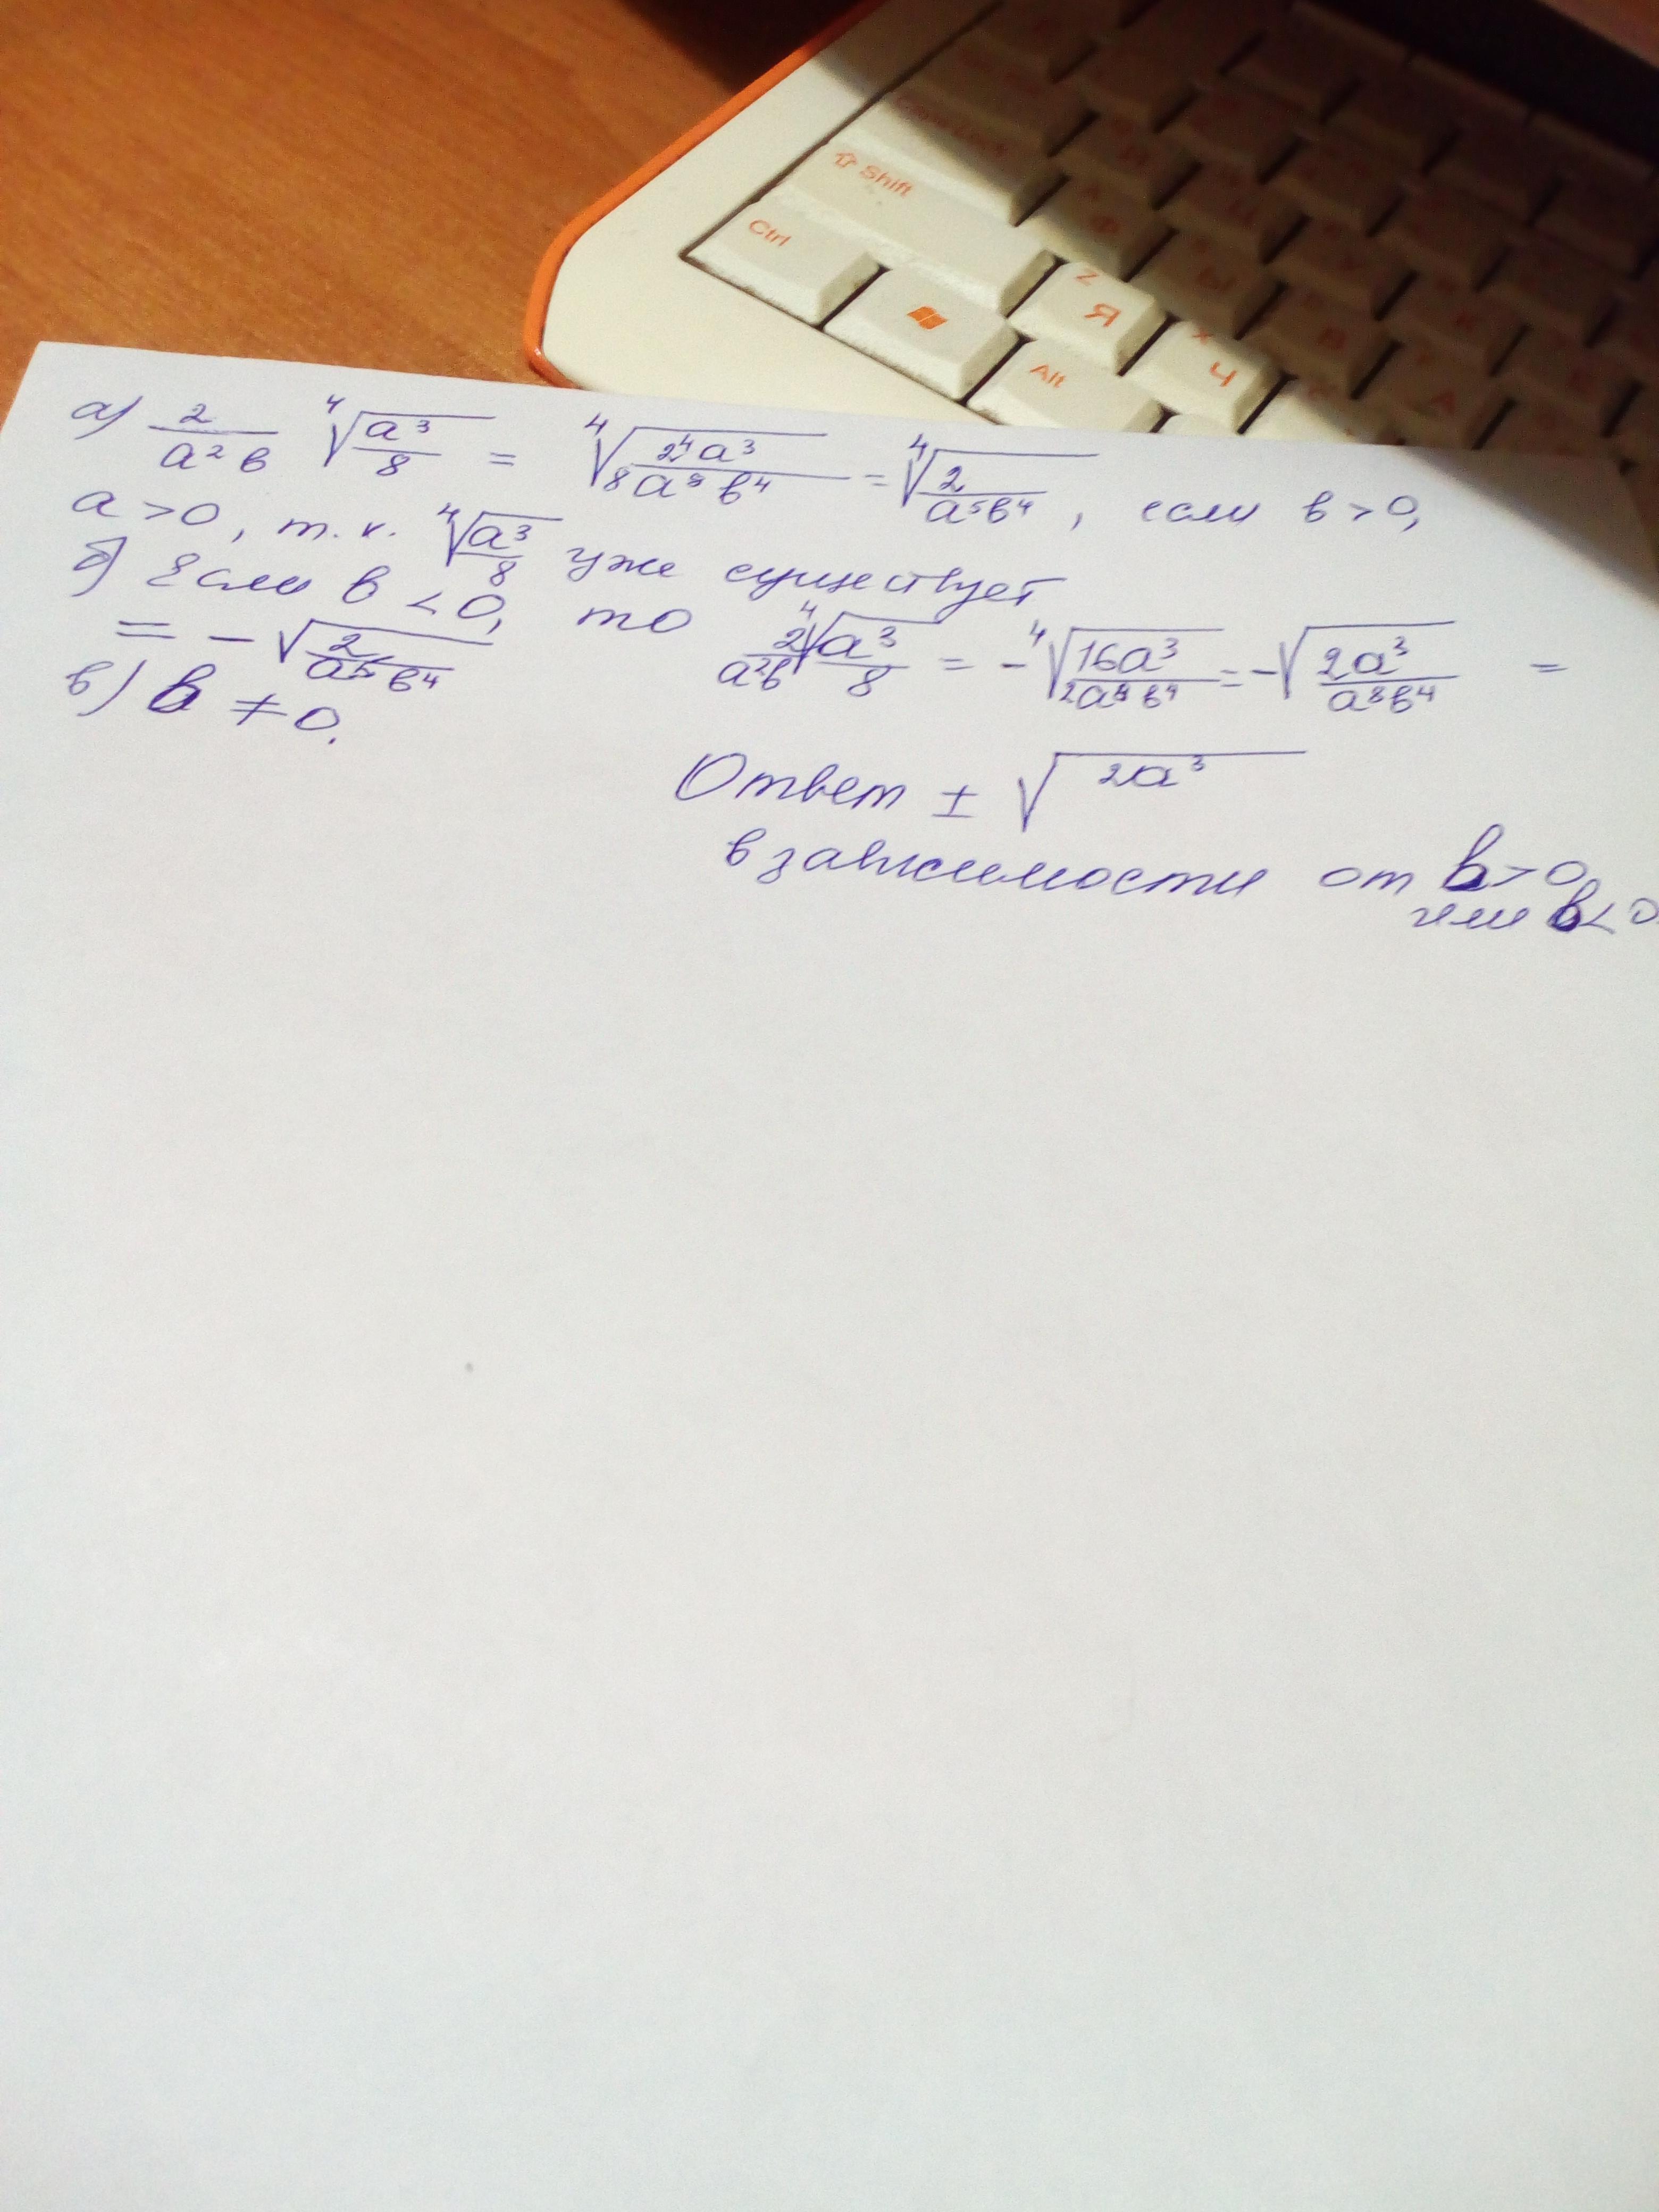 Shift
Ctrl
Z
Я
X
Ч
Alt
а) 2/(а²в) ⁴√(а³/8) = ⁴√(2⁴а³/(8а⁸в⁴)) = ⁴√(2/(а⁵в⁴)), если в > 0,
а > 0, т.к. ⁴√(а³/8) уже существует
б) Если в < 0, то 2/(а²в) ⁴√(а³/8) = -⁴√(16а³/(2а⁸в⁴)) = -√(2а³/(а⁸в⁴)) =
= -√(2/(а⁵в⁴))
в) в ≠ 0.
Ответ ± √(2а³)
в зависимости от в > 0
или в < 0.